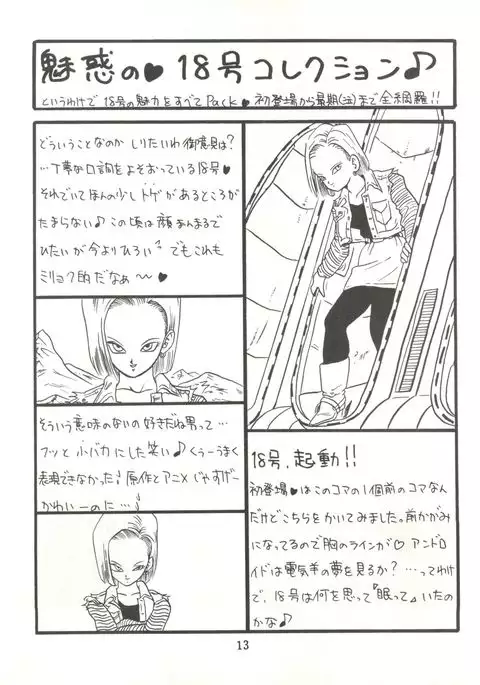 魅惑の♥18号コレクション♪
というわけで18号の魅力をすべてPack♥初登場から最期(注)まで全網羅!!
どういうことなのか しりたいわ 御意見は?
…丁寧な口調をよそおっている18号♥
それでいてほんの少しトゲがあるところが
たまらない♪この頃は顔まんまるで
ひたいが今よりひろい でもこれも
ミリョク的だなぁ〜♥
そういう意味のないの好きだね男って…
フッと小バカにした笑い♪くぅーうまく
表現できなかった 原作とアニメじゃすげー
かわいーのに…!
18号、起動!!
初登場♥はこのコマの1個前のコマなん
だけどこちらをかいてみました。前かがみ
になってるので胸のラインが♡アンドロ
イドは電気羊の夢を見るか?…ってわけ
で、18号は何を思って『眠って』いたの
かな♪
13